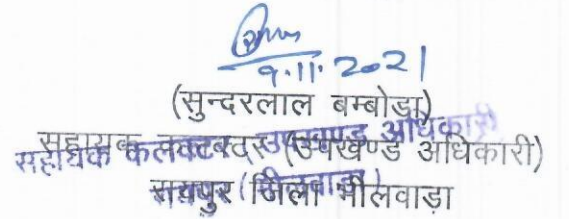 9.11.2021
(सुन्दरलाल बम्बोडा)
सहायक कलक्टर (उपखण्ड अधिकारी)
सहायक कलक्टर उपखण्ड अधिकारी
रायपुर जिला भीलवाड़ा
रायपुर (भीलवाड़ा)